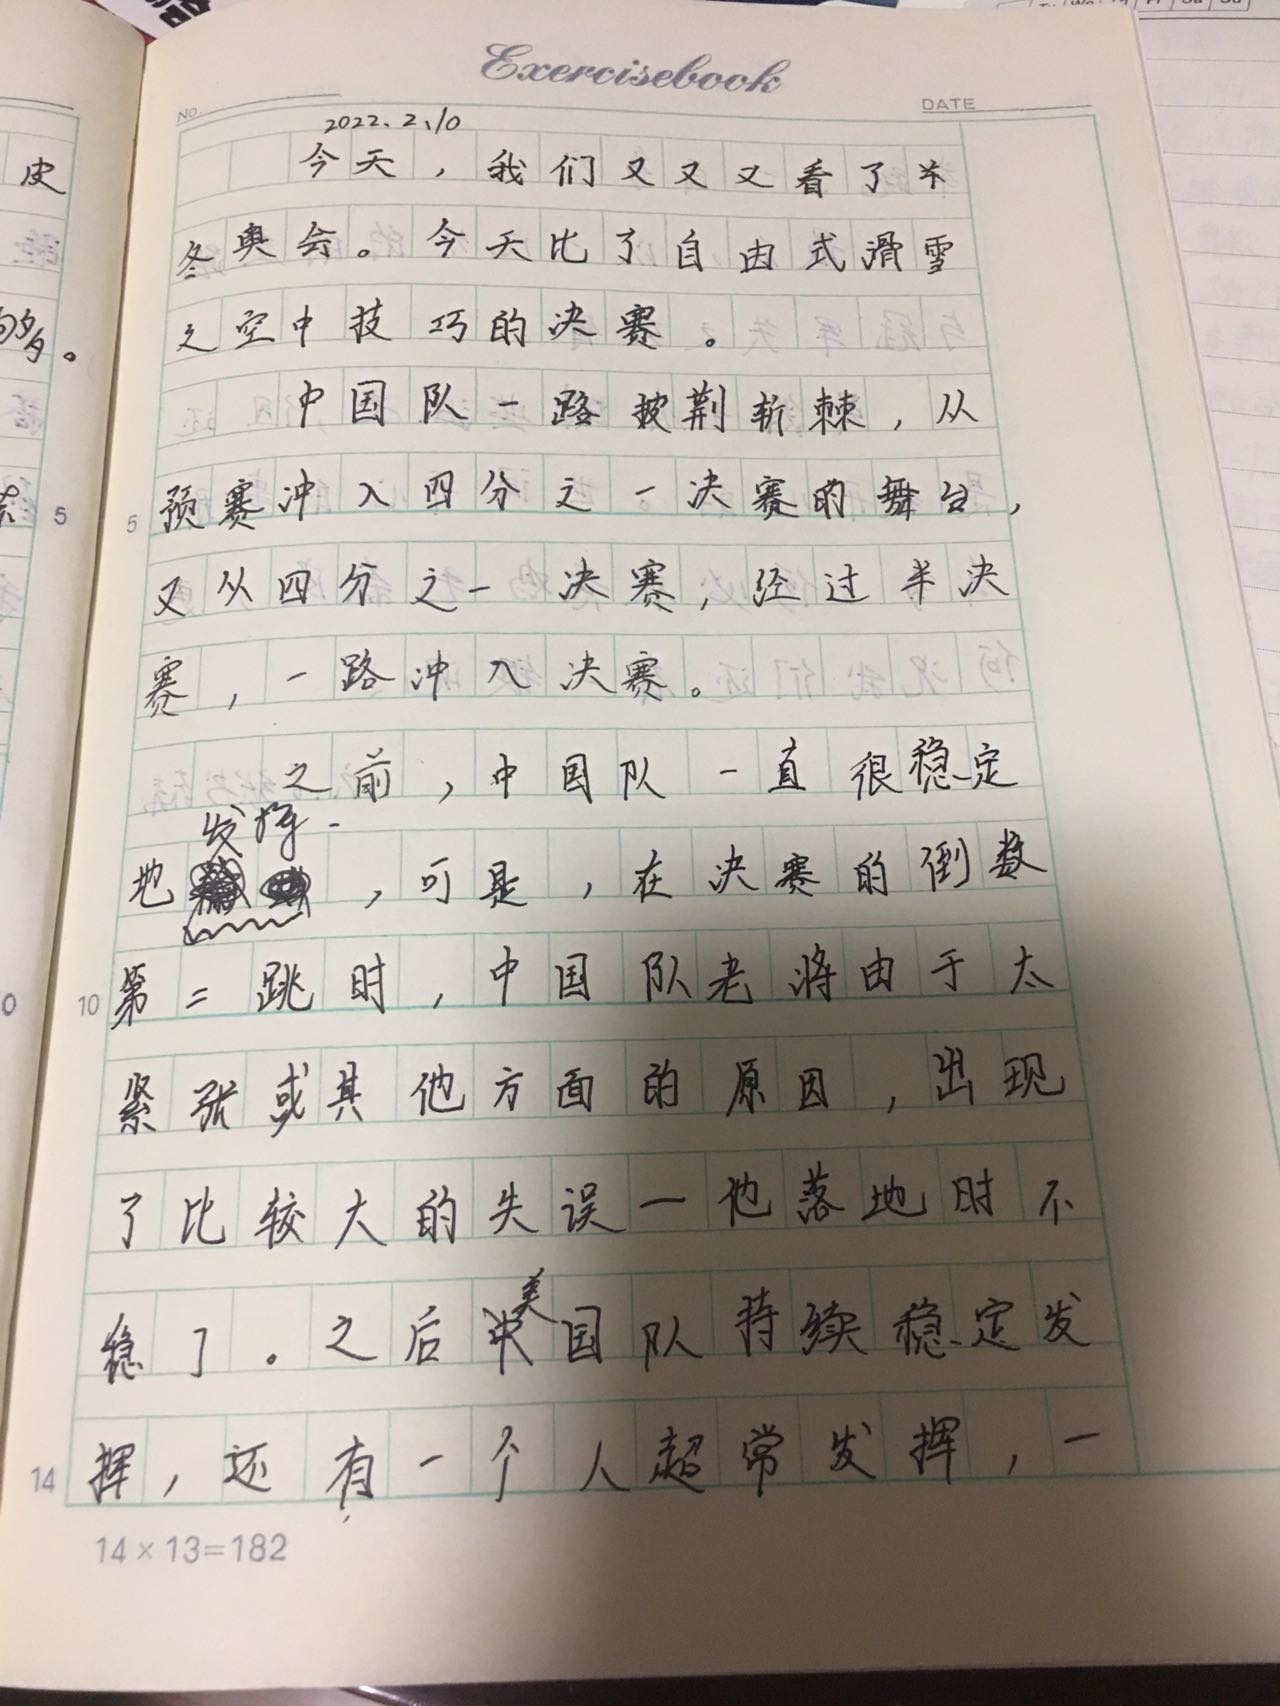 Exercisebook
NO.
DATE
2022.2.10
今天，我们又又又看了
冬奥会。今天比了自由式滑雪
之空中技巧的决赛。
中国队一路披荆斩棘，从
5 预赛冲入四分之一决赛的舞台，
又从四分之一决赛，经过半决
赛，一路冲入决赛。
之前，中国队一直很稳定
发挥
地，可是，在决赛的倒数
10 第二跳时，中国队老将由于太
紧张或其他方面的原因，出现
了比较大的失误一他落地时不
稳了。之后美国队持续稳定发
14 挥，还有一个人超常发挥，一
14×13=182
皮
够。
5
0